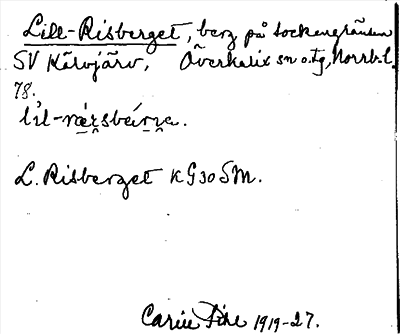 Lill-Risberget, berg på sockengränsen
SV Kärvjärv, Överkalix sn o. tg, Norrb. l.
78.
L. Risberget KG30SM.
Carin Pihl 1919-27.